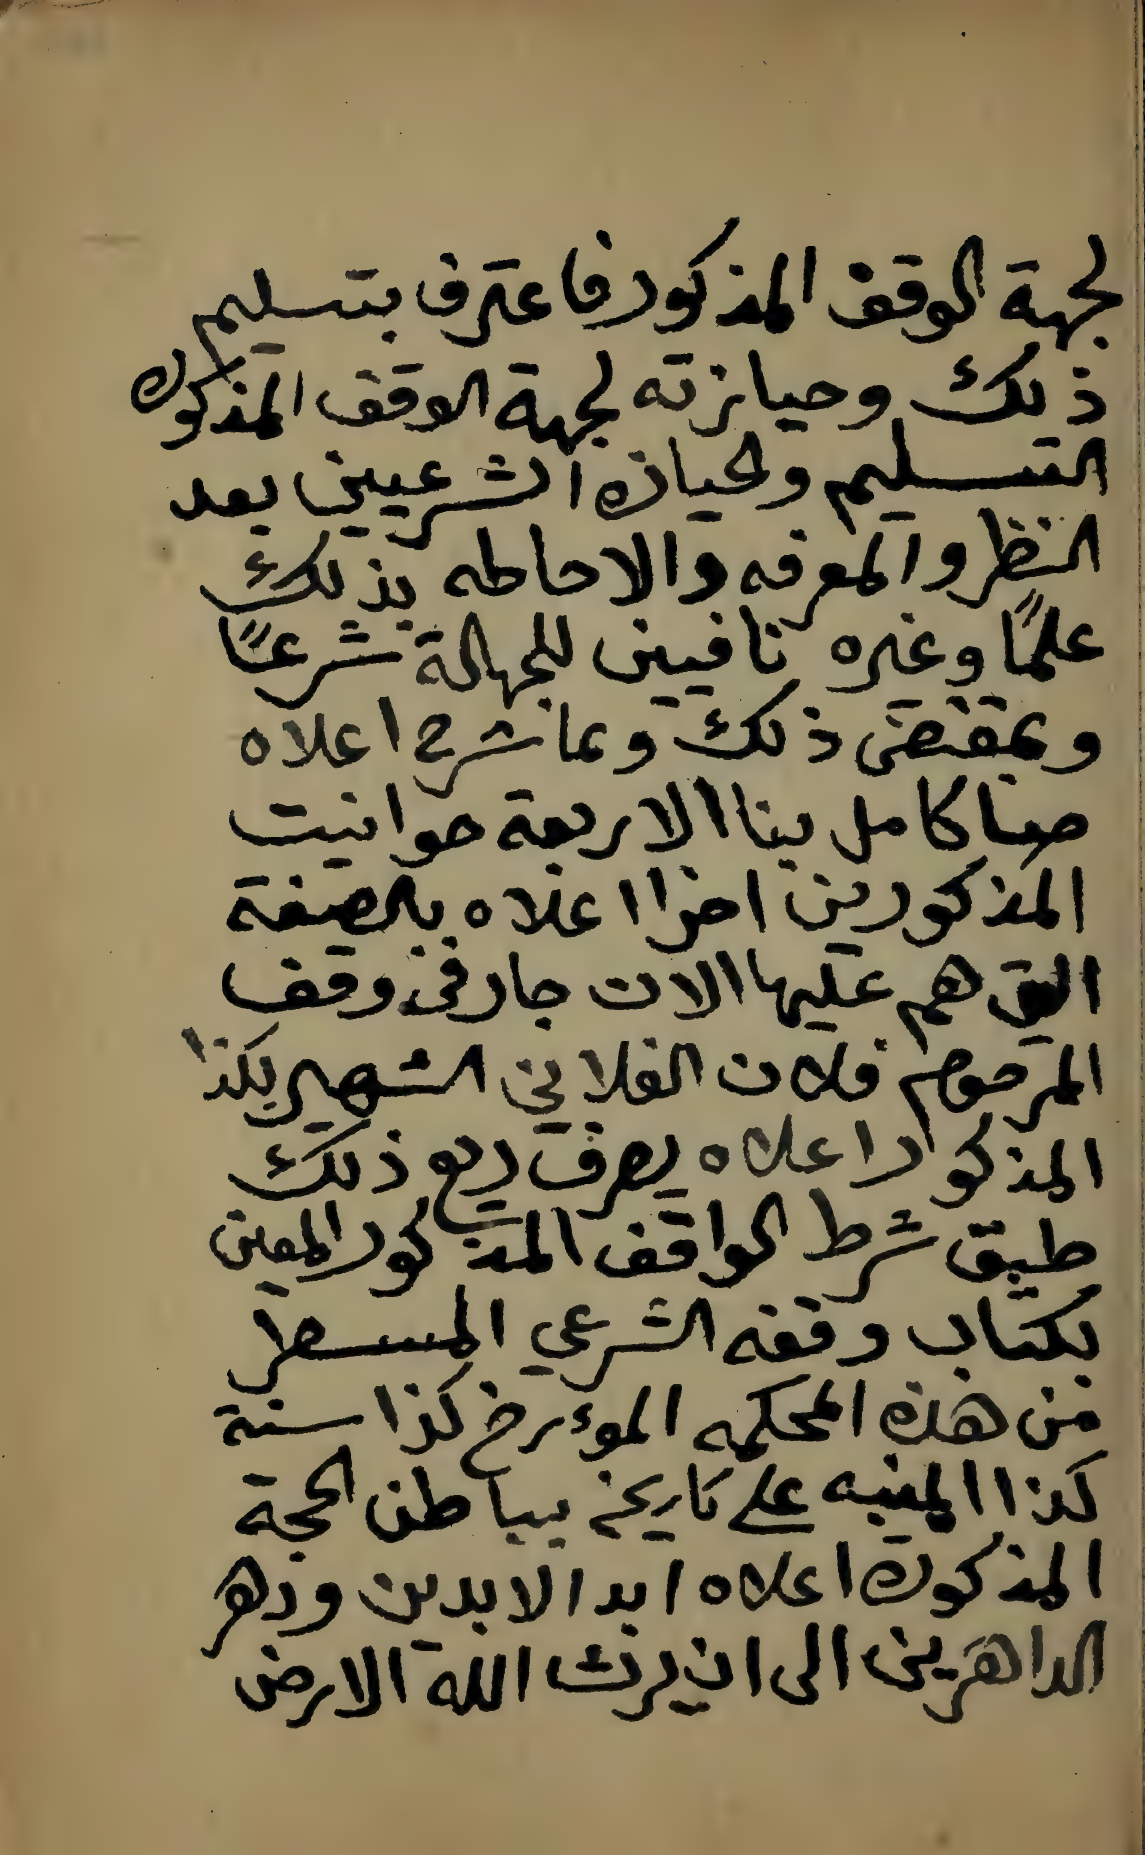 لجهة الوقف المذكور فاعترف بتسليم
ذلك وحيازته لجهة الوقف المذكور
التسليم والحيازه الشرعيين بعد
النظر والمعرفه والاحاطه بذلك
علمًا وغيره نافيين للجهالة شرعًا
وبمقتضى ذلك وبما شرح اعلاه
صا كامل بنا الاربعة حوانيت
المذكورين اخرا اعلاه بالصفة
التي هم عليها الان جار في وقف
المرحوم فلان الفلاني الشهير بكذا
المذكور اعلاه يصرف ريع ذلك
طبق شرط الواقف المذكور المعين
بكتاب وقفه الشرعي المسطر
من هذه المحكمه الموءرخ كذا سنة
كذا المنبه على تاريخ بباطن الحجة
المذكوره اعلاه ابد الابدين ودهر
الداهرين الى ان يرث الله الارض